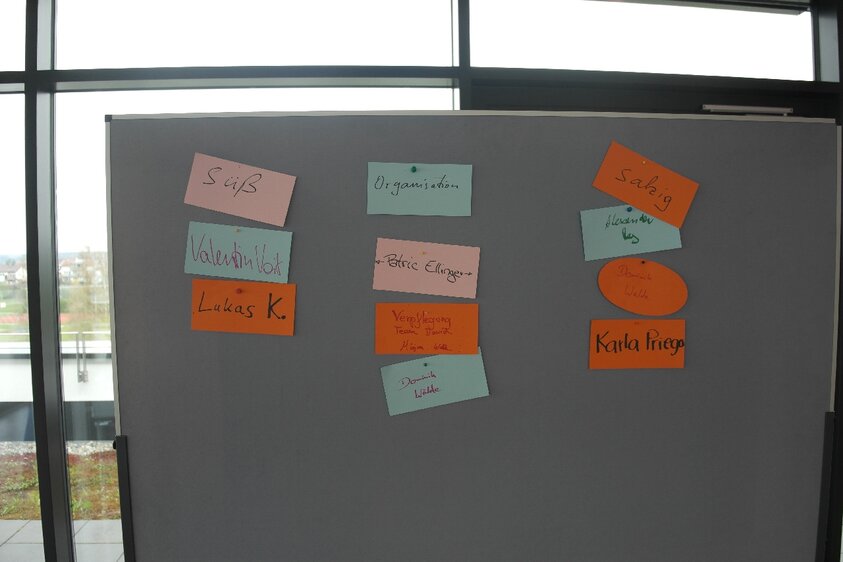 Süß
Valentin
Lukas K.
Organisation
Patric Ellinger
Verpflegung
Team
Dominik
Wälde
Salzig
Alexander
Dominik
Wälde
Karla Priego